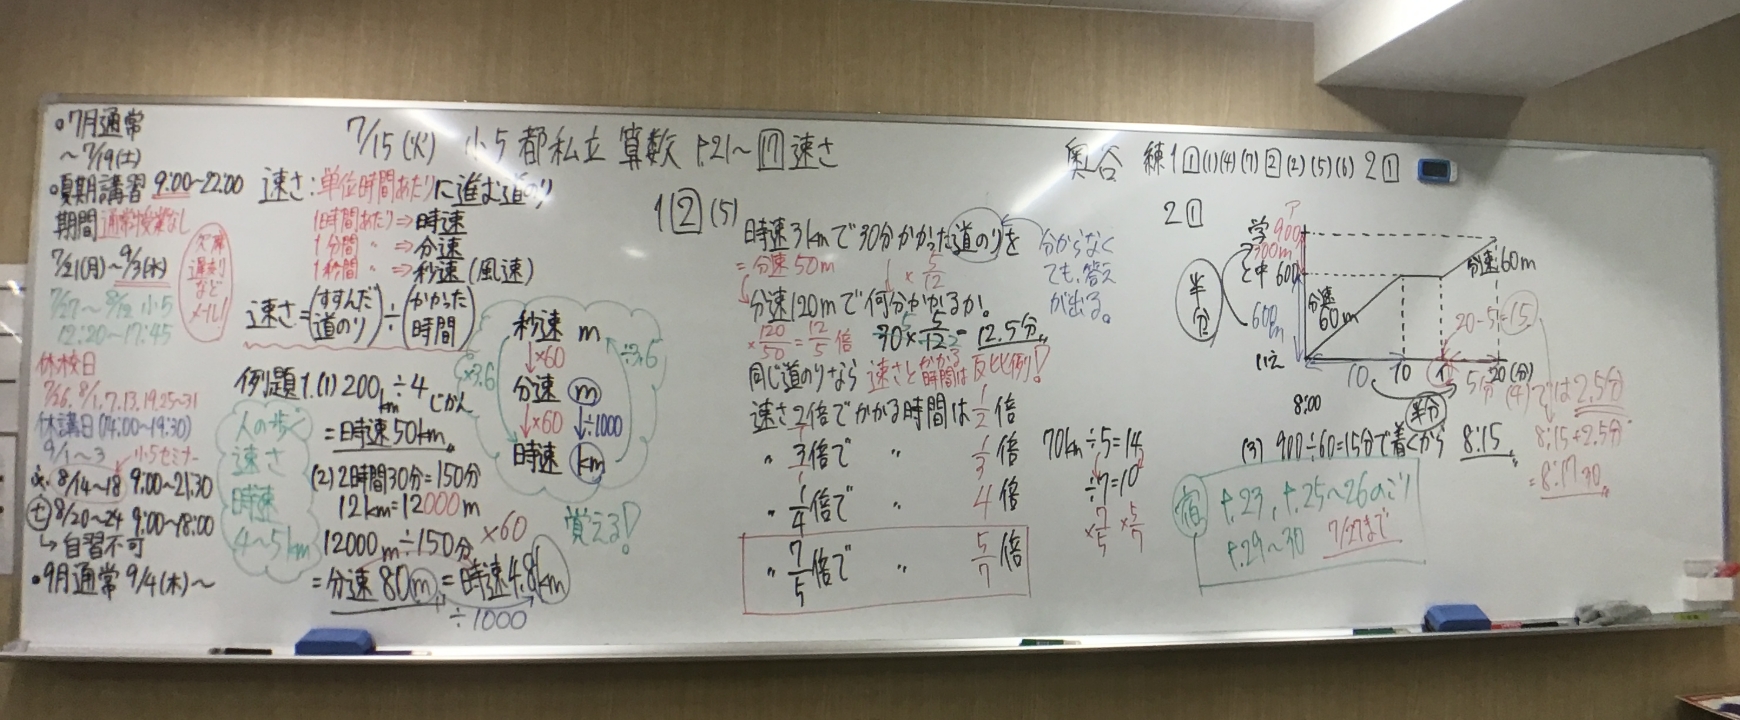 7/15(火) 小5 都私立 算数 P21〜 17 速さ
奥谷 練1 1(1)(4)(7) 2(2)(5)(6) 2 1
・7月通常
〜7/19(土)
・夏期講習 9:00~22:00
期間 通常授業なし
7/21(月)〜9/3(水)
欠席
遅刻
など
メール!
7/27〜8/12 小5
12:20〜17:45
休校日
7/26, 8/1,7,13,19,25~31
休講日(14:00~19:30)
9/1〜3
小5セミナー
8/14〜18 9:00~21:30
土 8/20~24 9:00~18:00
↳ 自習不可
・9月通常 9/4(木)〜
速さ:単位時間あたりに進む道のり
1時間あたり⇒時速
1分間 〃 ⇒分速
1秒間 〃 ⇒秒速(風速)
速さ=(すすんだ道のり)÷(かかった時間)
例題1.(1) 200km÷4じかん
=時速50km
(2) 2時間30分=150分
12km=12000m
12000m÷150分
=分速80m=時速4.8km
×60
÷1000
人の歩く
速さ
時速
4〜5km
秒速 m
↓×60
分速 m
↓×60 ↓÷1000
時速 km
×3.6
÷3.6
覚える!
1 2 (5)
時速3kmで30分かかった道のりを
=分速50m
×5/12
分速120mで何分かかるか。
×120/50=12/5倍
30×5/12=12.5分
分からなく
ても、答え
が出る。
同じ道のりなら 速さとかかる時間は反比例!
速さ2倍でかかる時間は1/2倍
〃 3倍で 〃 1/3倍
〃 1/4倍で 〃 4倍
〃 7/5倍で 〃 5/7倍
70km÷5=14
÷7=10
×7/5 ×5/7
2 1
ア
学 900
300m
と中 600
600m
半分
いえ
分速60m
分速60m
10 10
20(分)
5分
20-5=15
8:00
半分
(3) 900÷60=15分で着くから 8:15
(4)では2.5分
8:15+2.5分
=8:17 30
宿 P.23, P.25〜26のこり
P.29〜30 7/27まで